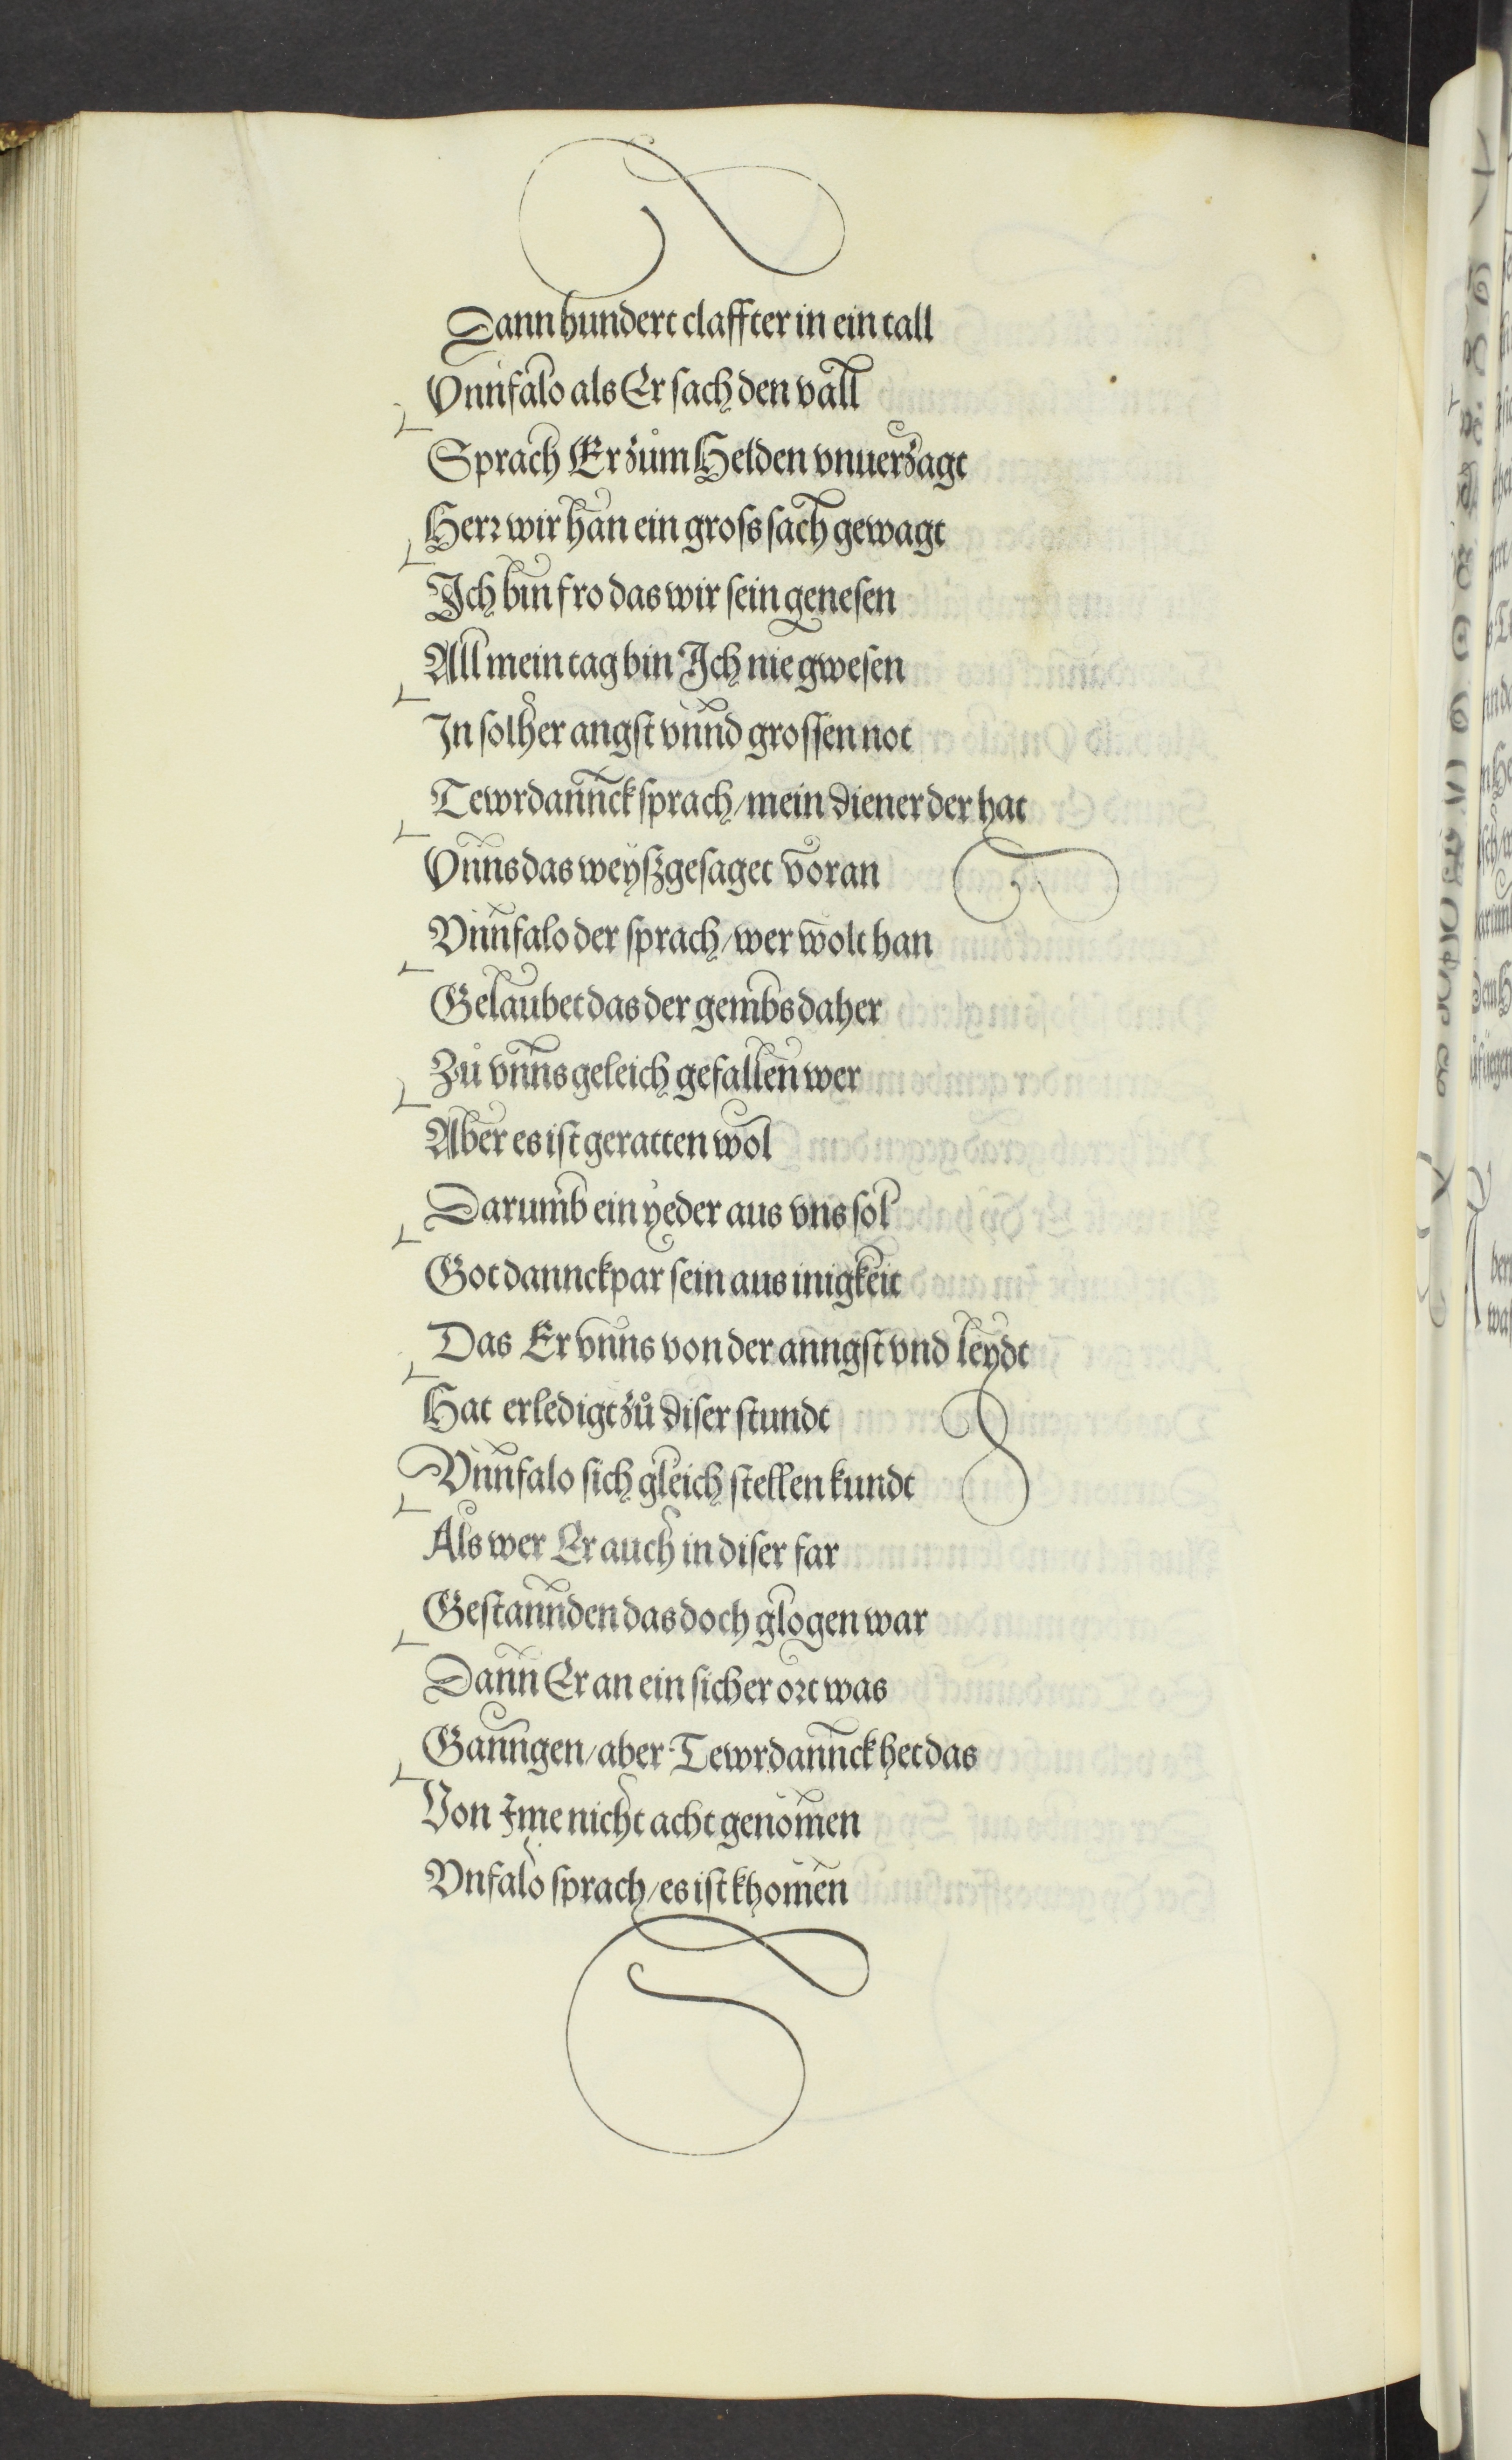 Dann hundert claffter in ein tall
Vnnfalo als Er sach den vall
Sprach Er zům Helden vnuerzagt
Herr wir han ein gross sach gewagt
Ich bin fro das wir sein genesen
All mein tag bin Ich nie gwesen
In solher angst vnnd grossen not
Tewrdannck sprach/mein diener der hat
Vnns das weyszgesaget voran
Vnnfalo der sprach/wer wolt han
Gelaubet das der gembs daher
Zů vnns geleich gefallen wer
Aber es ist geratten wol
Darumb ein yeder aus vns sol
Got dannckpar sein aus inigkeit
Das Er vnns von der anngst vnd leydt
Hat erledigt zů diser stundt
Vnnfalo sich gleich stellen kundt
Als wer Er auch in diser far
Gestannden das doch glogen war
Dann Er an ein sicher ort was
Ganngen/aber Tewrdannck het das
Von Ime nicht acht genomen
Vnfalo sprach/es ist khomen